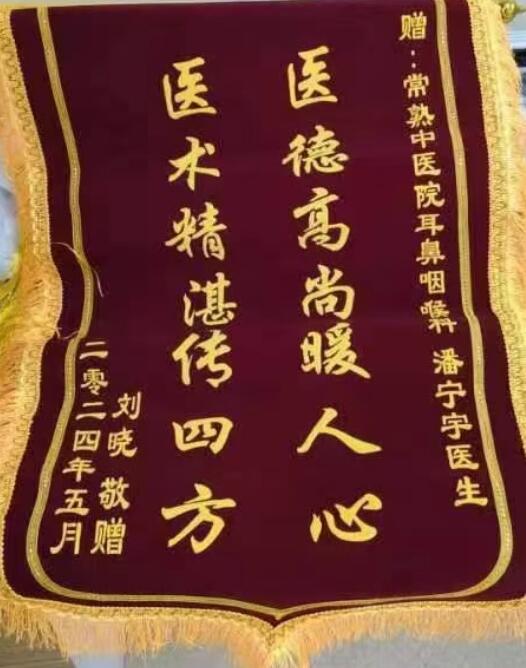 赠：常熟中医院耳鼻咽喉科 潘宁宇医生
医德高尚暖人心
医术精湛传四方
刘晓 敬赠
二零二四年五月